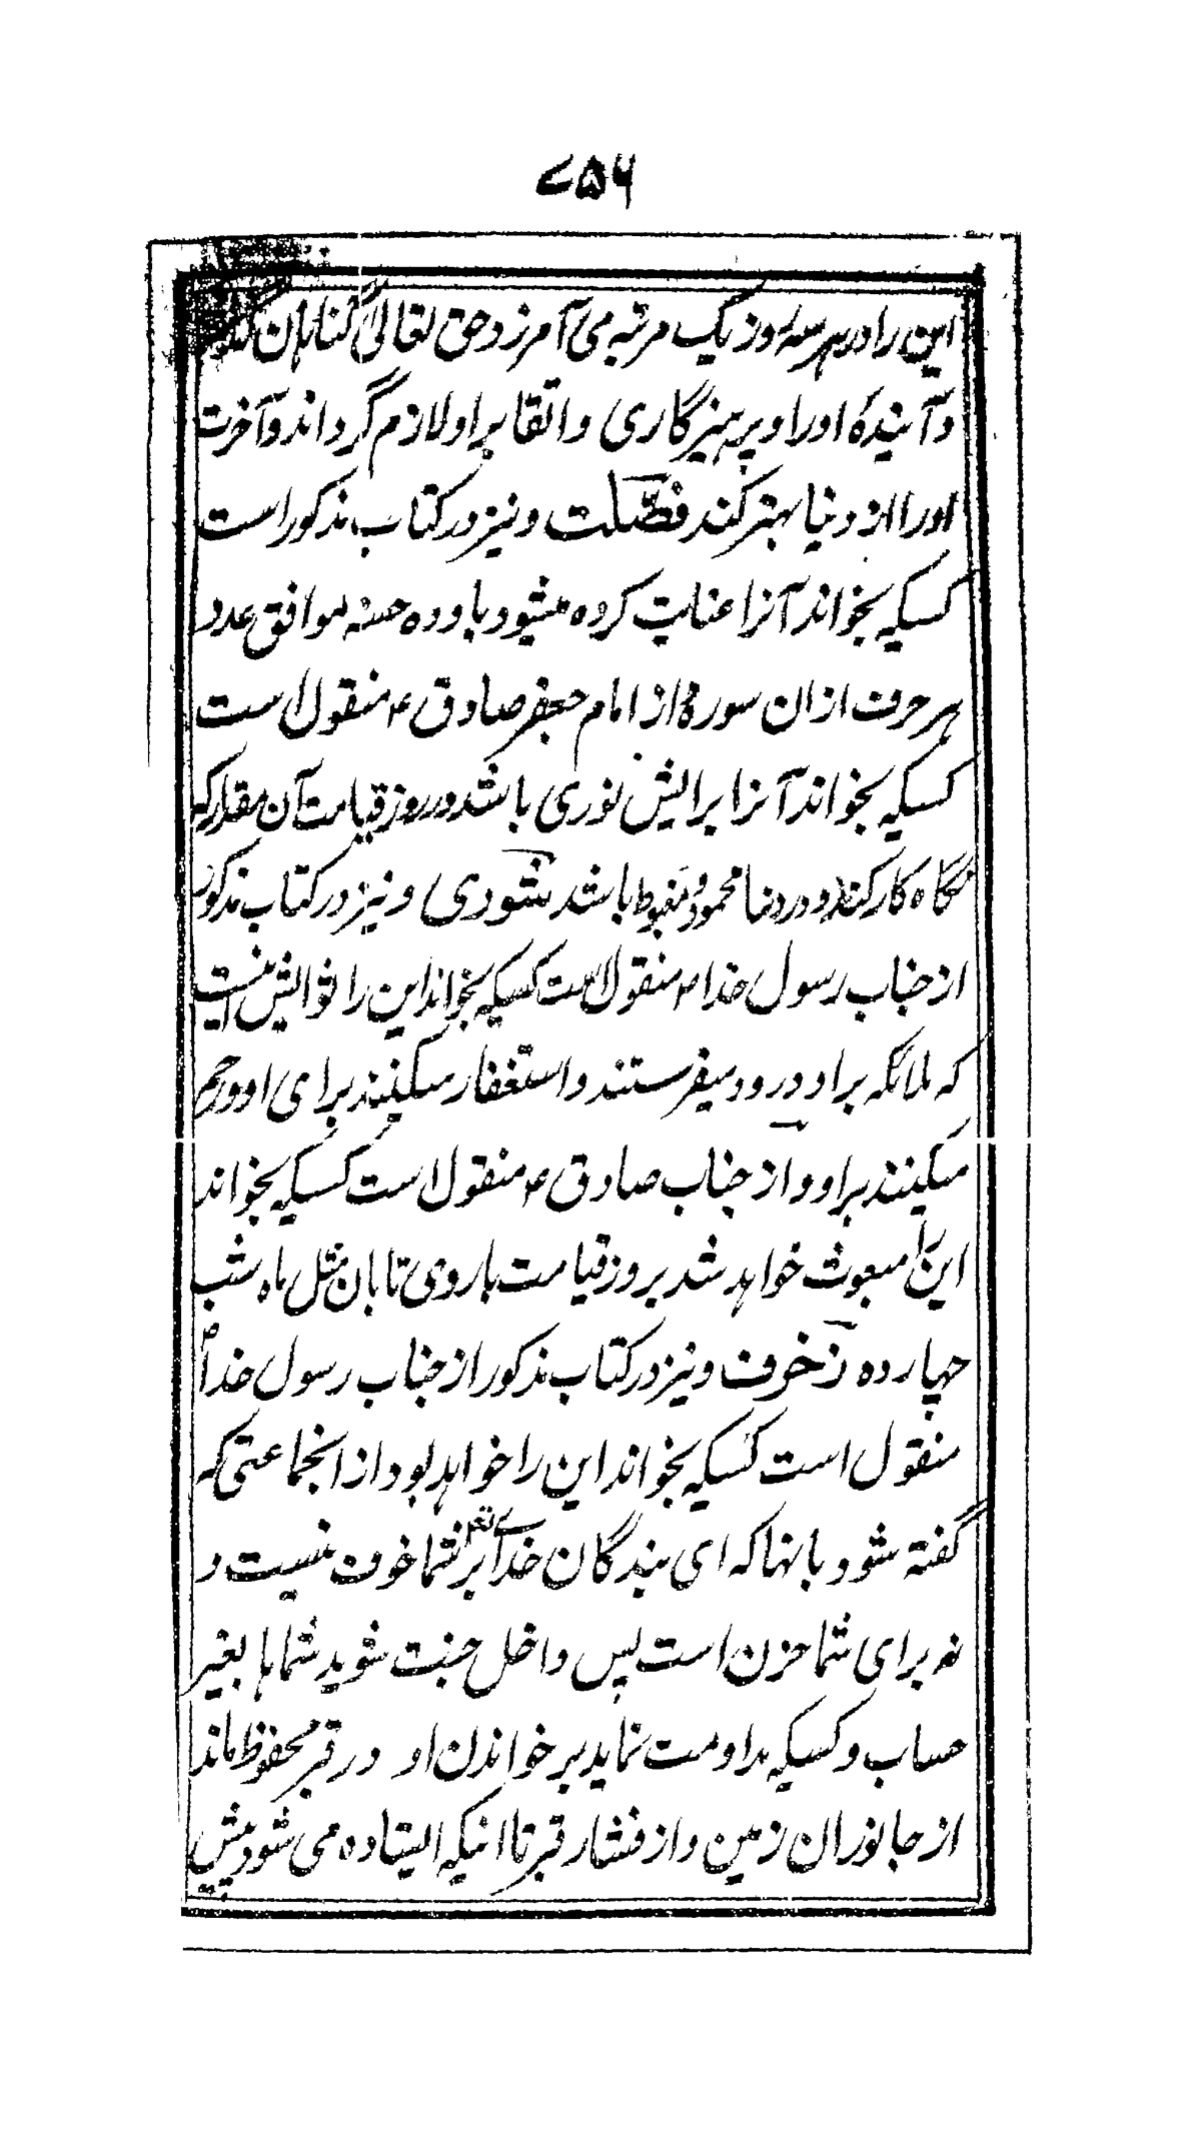 ۷۵۶
این را در هر سه روز یک مرتبه می آمرزد حق تعالی گناهان
و آیندهٔ او را و پرهیزگاری و اتقا بر او لازم گرداند و آخرت
او را از دنیا بهتر کند فصّلت و نیز در کتاب مذکور است
کسیکه بخواند آنرا عنایت کرده میشود باو ده حسنه موافق عدد
هر حرف ازان سوره و از امام جعفر صادق ع منقول است
کسیکه بخواند آنرا برایش نوری باشد در روز قیامت آن مقدار که
نگاه کار کند و در دنیا محمود و مغبوط باشد شوری و نیز در کتاب مذکور
از جناب رسول خدا ص منقول است کسیکه بخواند این را ثوابش اینست
که ملائکه بر او درود میفرستند و استغفار میکنند برای او و رحم
میکنند بر او و از جناب صادق ع منقول است کسیکه بخواند
این را مبعوث خواهد شد بروز قیامت باروی تابان مثل ماه شب
چهارده زخرف و نیز در کتاب مذکور از جناب رسول خدا ص
منقول است کسیکه بخواند این را خواهد بود از انجماعتی که
گفته شود بانها که ای بندگان خدای تعم بر شما خوف نیست و
نه برای شما حزن است پس داخل جنت شوید شماها بغیر
حساب و کسیکه مداومت نماید بر خواندن او در قبر محفوظ ماند
از جانوران زمین و از فشار قبر تا اینکه ایستاده می شود پیش